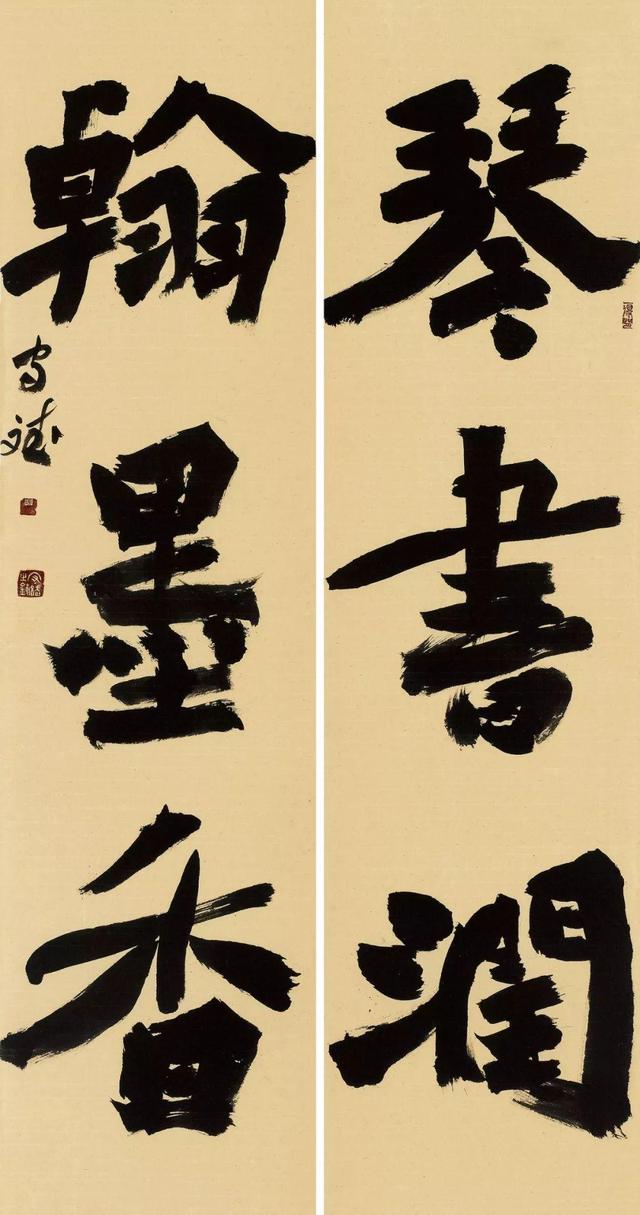 琴書潤
翰墨香
守斌